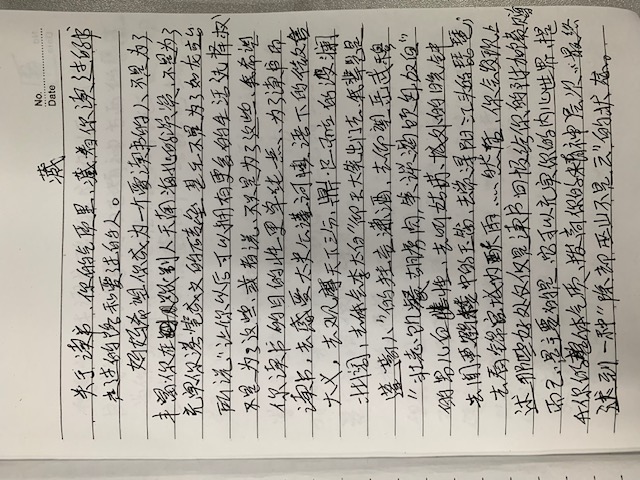 No.
Date
藏
关于读书,你的气质里,藏着你读过的书
走过的路和爱过的人。
妈妈希望你成为一个爱读书的人,不是为了
丰富你在别人天南海北的谈资,不是为了
充实你落笔成文的,甚至不是为了如龙应台
所说:"让你以后可以拥有更多的生活选择权"
不是为了这些,或者说,不只是为了这些,我希望
你读书的目的性更单纯点,为了读书而
读书,去感受太史公
大义,去观摩天下三分,鼎足而立的波澜
壮阔,去体会李太白"仰天大笑出门去,我辈岂是
蓬蒿人"的狂妄潇洒,去仰望岳武穆
"壮志饥餐胡虏肉,笑谈渴饮匈奴血"
的男儿血性,去听姑苏城外的晚钟
去闻中的玉笛,去赏浔阳江头的琵琶;
去看锦官城的雨……然后,你会发现上
述那些好处仅仅是读书回报给你的附加的赠
而已,最主要的是,它可以充实你的内心世界,提
升你的整体气质,拔高你的精神层次,最终
达到一种"除却巫山不是云"的状态。